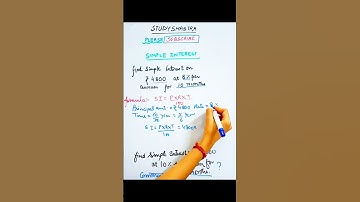 STUDYSHASTRA
PLEASE SUBSCRIBE
SIMPLE INTEREST
find Simple Interest on
₹ 4800 at 5% per
annum for 10 months
formula:- SI = P×R×T
100
Principal amt = ₹4800 Rate =
Time = 10/12 year = 5/6 year
S.I = P×R×T = 4800×
100
find Simple Interest
at 10%
for
?